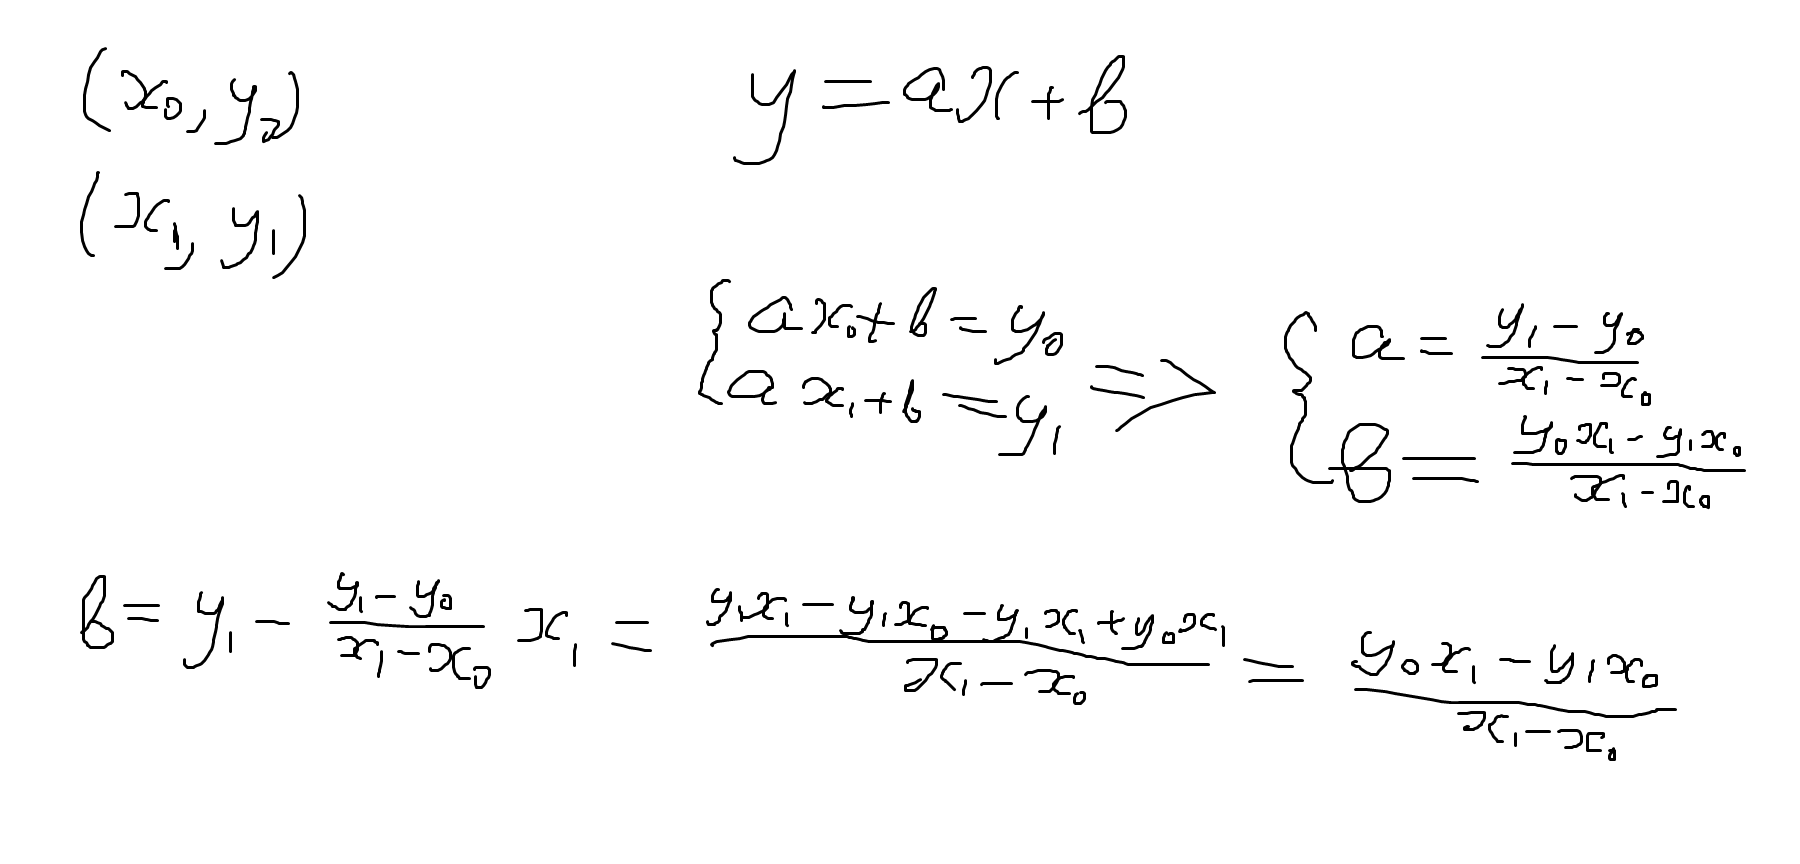 (x₀, y₂)
y = ax + b
(x₁, y₁)
{ ax₀ + b = y₀
ax₁ + b = y₁ ⟹ { a = (y₁ − y₀)/(x₁ − x₀)
b = (y₀x₁ − y₁x₀)/(x₁ − x₀)
b = y₁ − (y₁ − y₀)/(x₁ − x₀) x₁ = (y₁x₁ − y₁x₀ − y₁x₁ + y₀x₁)/(x₁ − x₀) = (y₀x₁ − y₁x₀)/(x₁ − x₀)